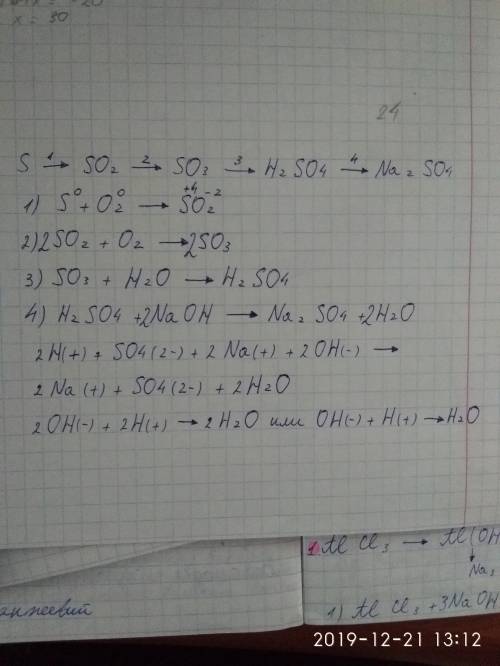 x = 30
24
S 1→ SO2 2→ SO3 3→ H2SO4 4→ Na2SO4
1) S⁰ + O2⁰ → S⁺⁴O2⁻²
2) 2SO2 + O2 → 2SO3
3) SO3 + H2O → H2SO4
4) H2SO4 + 2NaOH → Na2SO4 + 2H2O
2H(+) + SO4(2-) + 2Na(+) + 2OH(-) →
2Na(+) + SO4(2-) + 2H2O
2OH(-) + 2H(+) → 2H2O или OH(-) + H(+) → H2O
1 AlCl3 → Al(OH
↓
Na3
1) AlCl3 + 3NaOH
2019-12-21 13:12